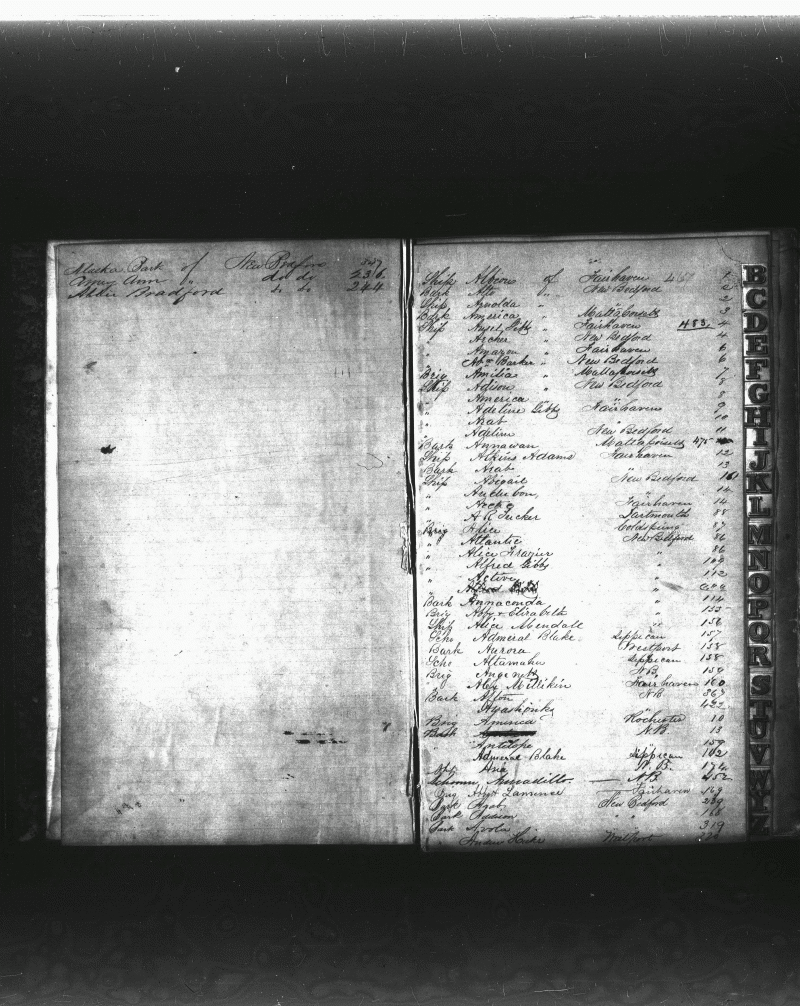 Alaska Bark of New Bedford 347
Amy Ann " do do 236
Alden Bradford " " 244
Ship Albion of Fairhaven 1
Bark Alto " New Bedford 2
Ship Arnolda " " 2
Brig America " Mattapoisett 3
Ship Ansel Gibbs " Fairhaven 483 4
" Archer " New Bedford 4
" Amazon " Fairhaven 6
" Abm Barker " New Bedford 6
Brig Amelia " Mattapoisett 7
Ship Adison " New Bedford 8
" America " " 8
" Adeline Gibbs Fairhaven 9
" Arab " 10
" Adeline New Bedford 11
Bark Annawan Mattapoisett 475
Ship Atkins Adams Fairhaven 12
Bark Arab " 13
Ship Abigail New Bedford
" Audubon " 14
" Fairhaven 14
" A R Tucker Dartmouth 88
Brig Alice Coldspring 87
" Atlantic New Bedford 86
" Alice Frazier " 86
" Alfred Gibbs " 109
" Active " 112
Bark Annaconda " 114
Brig Abby & Elizabeth " 155
Ship Alice Mendall " 156
Schr Admeral Blake Sippican 157
Bark Aurora Westport 158
Schr Altamaha Sippican 158
Brig N.B. 159
" Alex Millikin Fairhaven 160
Bark Afton N.B. 367
" 422
Brig America Rochester 10
Bark N.B. 13
" Antilope " 159
Admeral Blake Sippican 162
Asia N.B. 174
Schooner Armadillo — N.B. 452
Amy Lawrence — Fairhaven 169
Bark New Bedford 289
Bark Addison " " 168
Bark Apola 319
" Andrew Hicks Westport
B
C
D
E
F
G
H
I
J
K
L
M
N
O
P
Q
R
S
T
U
V
W
Y
Z